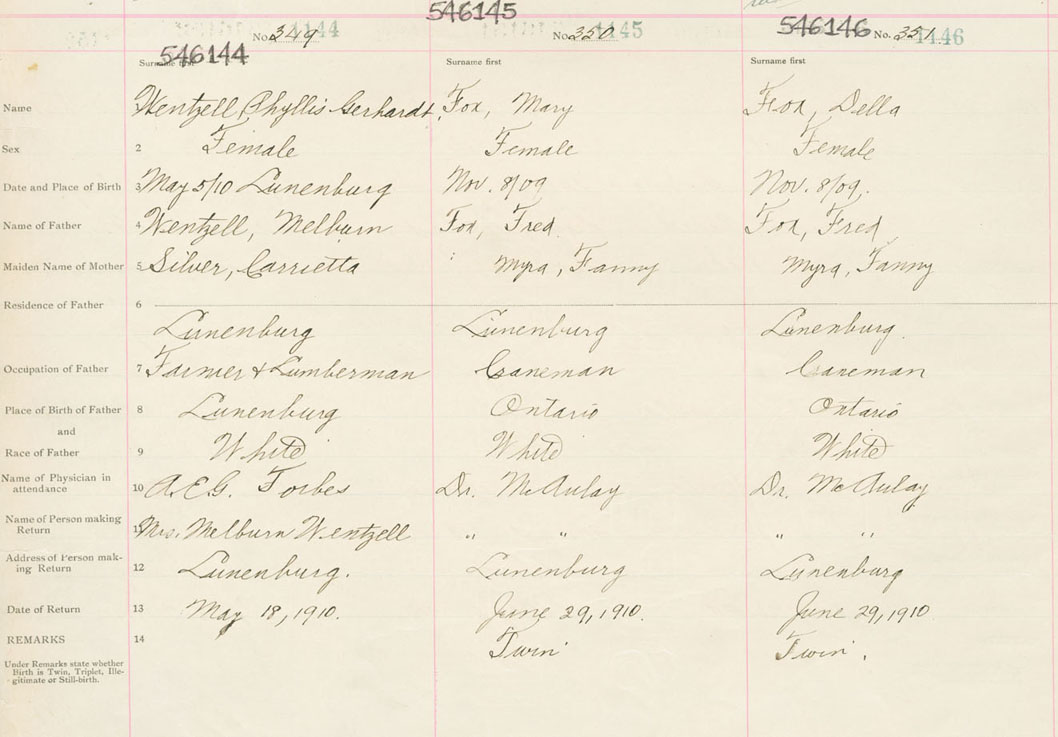 546145
546144 No. 349
No. 350
546146 No. 351
Surname first Surname first Surname first
Name Wentzell, Phyllis Gerhardt. Fox, Mary Fox, Della
Sex 2 Female Female Female
Date and Place of Birth 3 May 5/10 Lunenburg Nov. 8/09 Nov. 8/09.
Name of Father 4 Wentzell, Melburn Fox, Fred. Fox, Fred
Maiden Name of Mother 5 Silver, Carrietta Myra, Fanny Myra, Fanny
Residence of Father 6
Lunenburg Lunenburg Lunenburg.
Occupation of Father 7 Farmer & Lumberman Caneman Caneman
Place of Birth of Father 8 Lunenburg Ontario Ontario
and
Race of Father 9 White White White
Name of Physician in
attendance 10 A.E.G. Forbes Dr. McAulay Dr. McAulay
Name of Person making
Return 11 Mrs. Melburn Wentzell " " " "
Address of Person mak-
ing Return 12 Lunenburg. Lunenburg Lunenburg
Date of Return 13 May 18, 1910. June 29, 1910. June 29, 1910
REMARKS 14 Twin Twin.
Under Remarks state whether
Birth is Twin, Triplet, Ille-
gitimate or Still-birth.